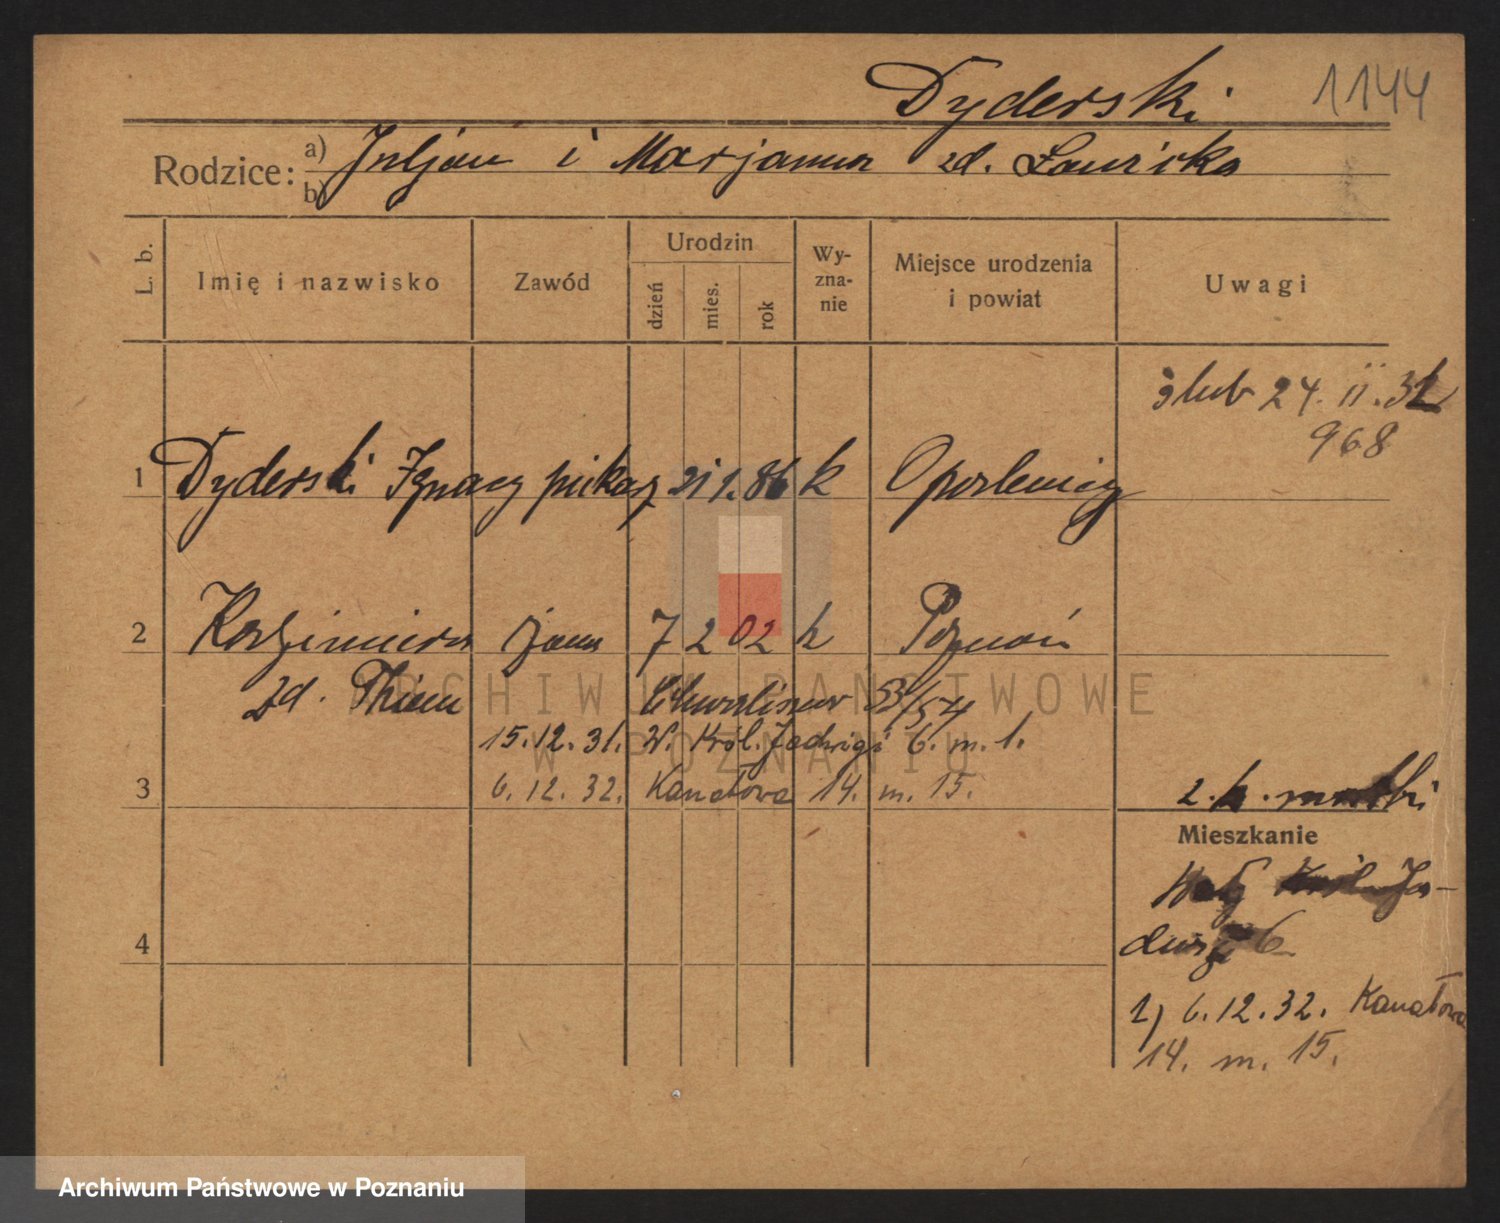 Dyderski 1144
Rodzice: a) Juljan i Marjanna zd. Ławicka
b)
L. b. Imię i nazwisko Zawód Urodzin dzień mies. rok Wy-zna-nie Miejsce urodzenia i powiat Uwagi
ślub 24. II. 31
968
1 Dyderski Ignacy piekarz 21 1. 86 k
2 Kazimiera żona 7 2 02 k Poznań
zd. Thiem Chwaliszewo 53/54
15.12.31. W. Król. Jadwigi 6. m. 1.
3 6.12.32. Kanałowa 14. m. 15.
2. k.
Mieszkanie
Wały Król. Ja-
dwigi 6
4
1) 6.12.32. Kanałowa
14. m. 15.
ARCHIWUM PAŃSTWOWE
W POZNANIU
Archiwum Państwowe w Poznaniu